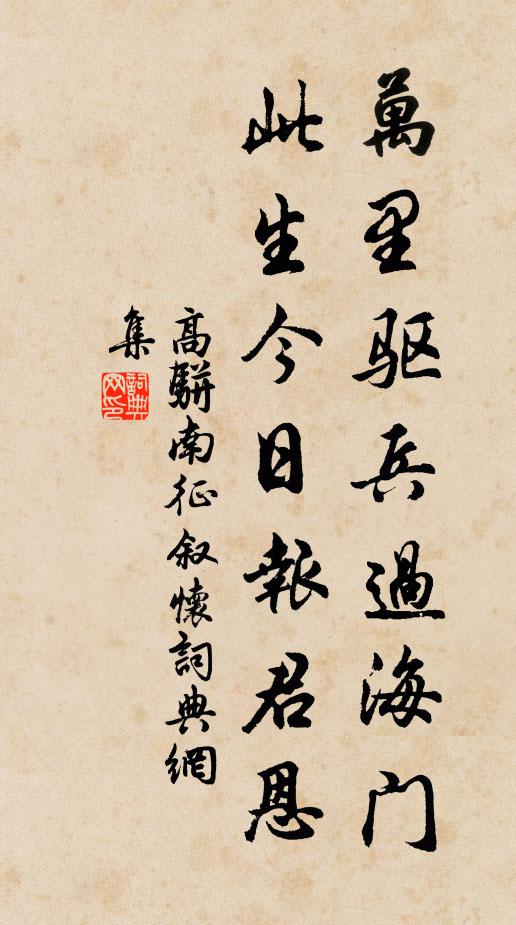 萬里驱兵過海门
此生今日報君恩
高駢南征叙懷詞典網
集
詞典网印